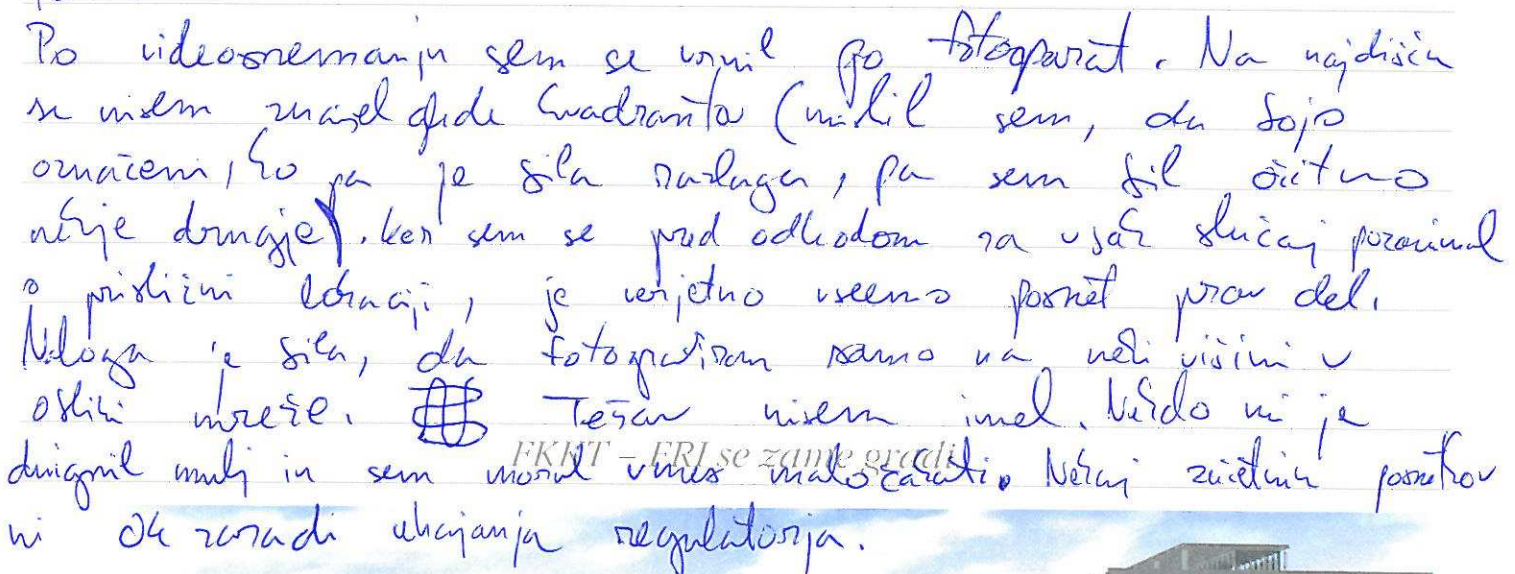 Po videosnemanju sem se vrnil po fotoaparat. Na najdišču
se nisem znašel glede kvadranta (mislil sem, da bojo
označeni, ko pa je bila razlaga, pa sem bil očitno
nekje drugje). ker sem se pred odhodom za vsak slučaj pozanimal
o približni lokaciji, je verjetno vseeno posnet prav del.
Naloga je bila, da fotografiram samo na neki višini v
obliki mreže. Težav nisem imel. Nekdo mi je
dvignil mulj in sem moral vmes malo čakati. Nekaj začetnih posnetkov
FKKT – FRI se zame gradi
ni ok zaradi uhajanja regulatorja.